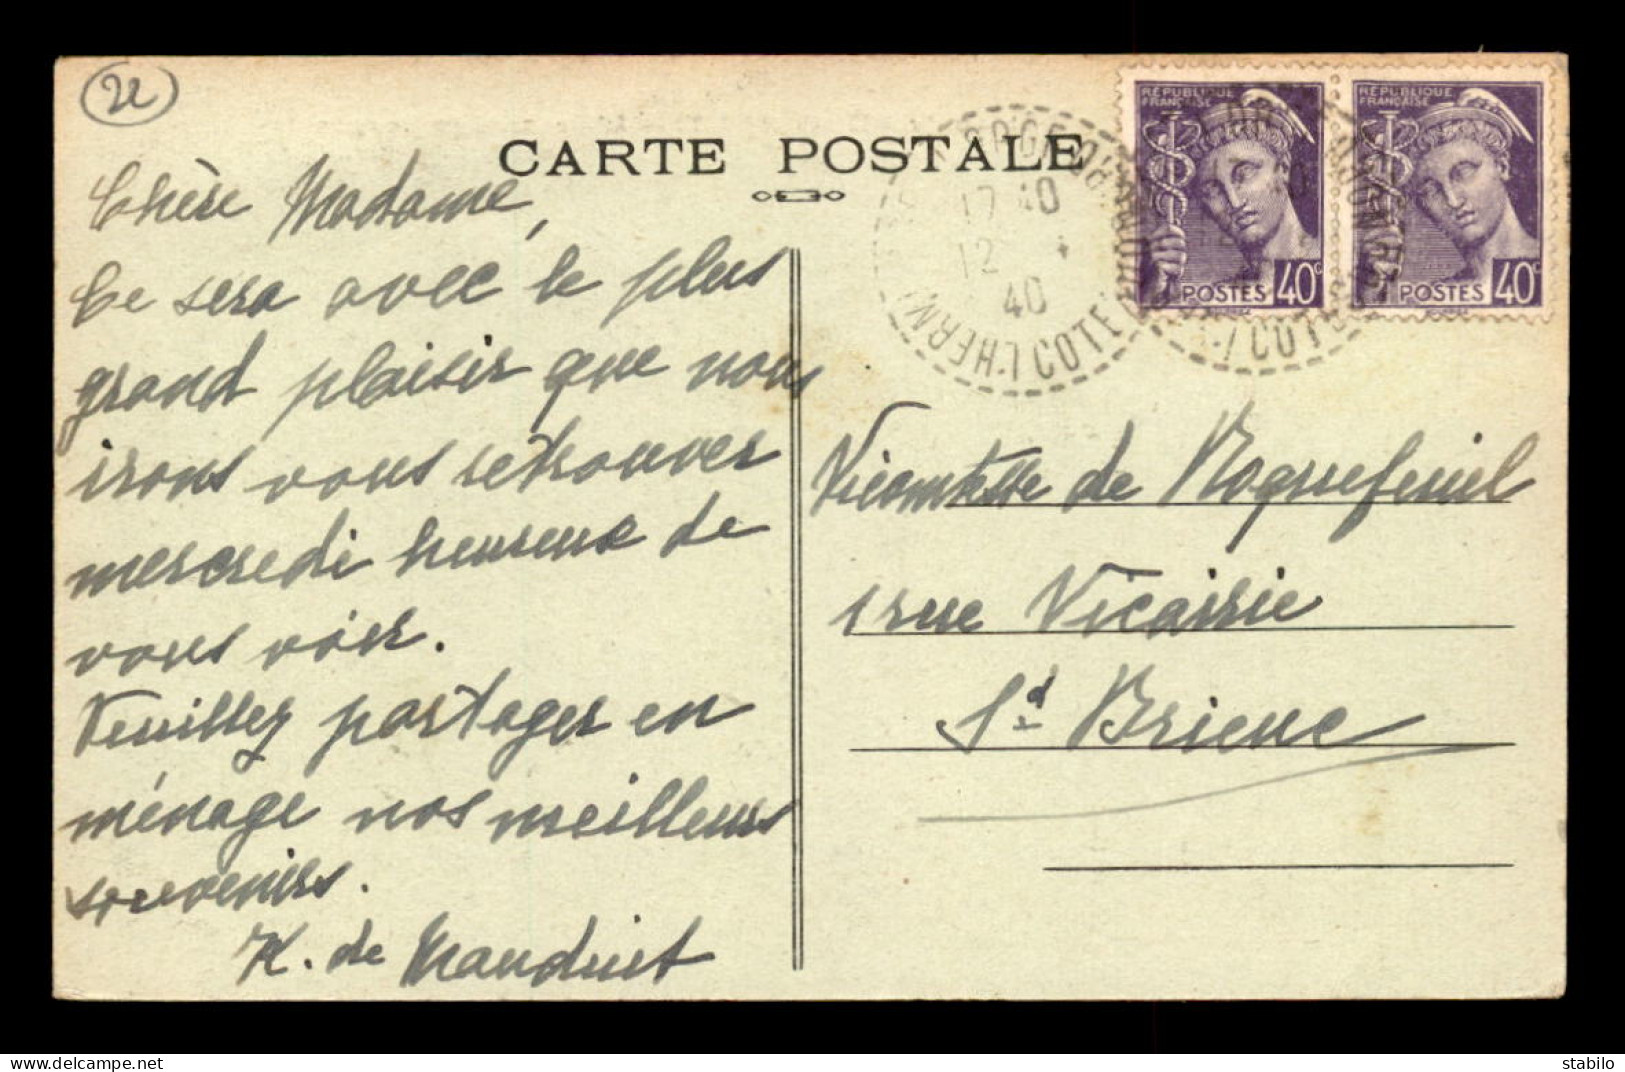 22
CARTE POSTALE
RÉPUBLIQUE
FRANÇAISE
POSTES 40c
RÉPUBLIQUE
FRANÇAISE
POSTES 40c
17 40
12
40
COTE
Chère Madame,
Ce sera avec le plus
grand plaisir que nous
irons vous retrouver
mercredi heureux de
vous voir.
Veuillez partager en
ménage nos meilleurs
souvenirs.
K. de Mauduit
Vicomtesse de Roquefeuil
1 rue Vicairie
St Brieuc
delcampe.net
stabilo